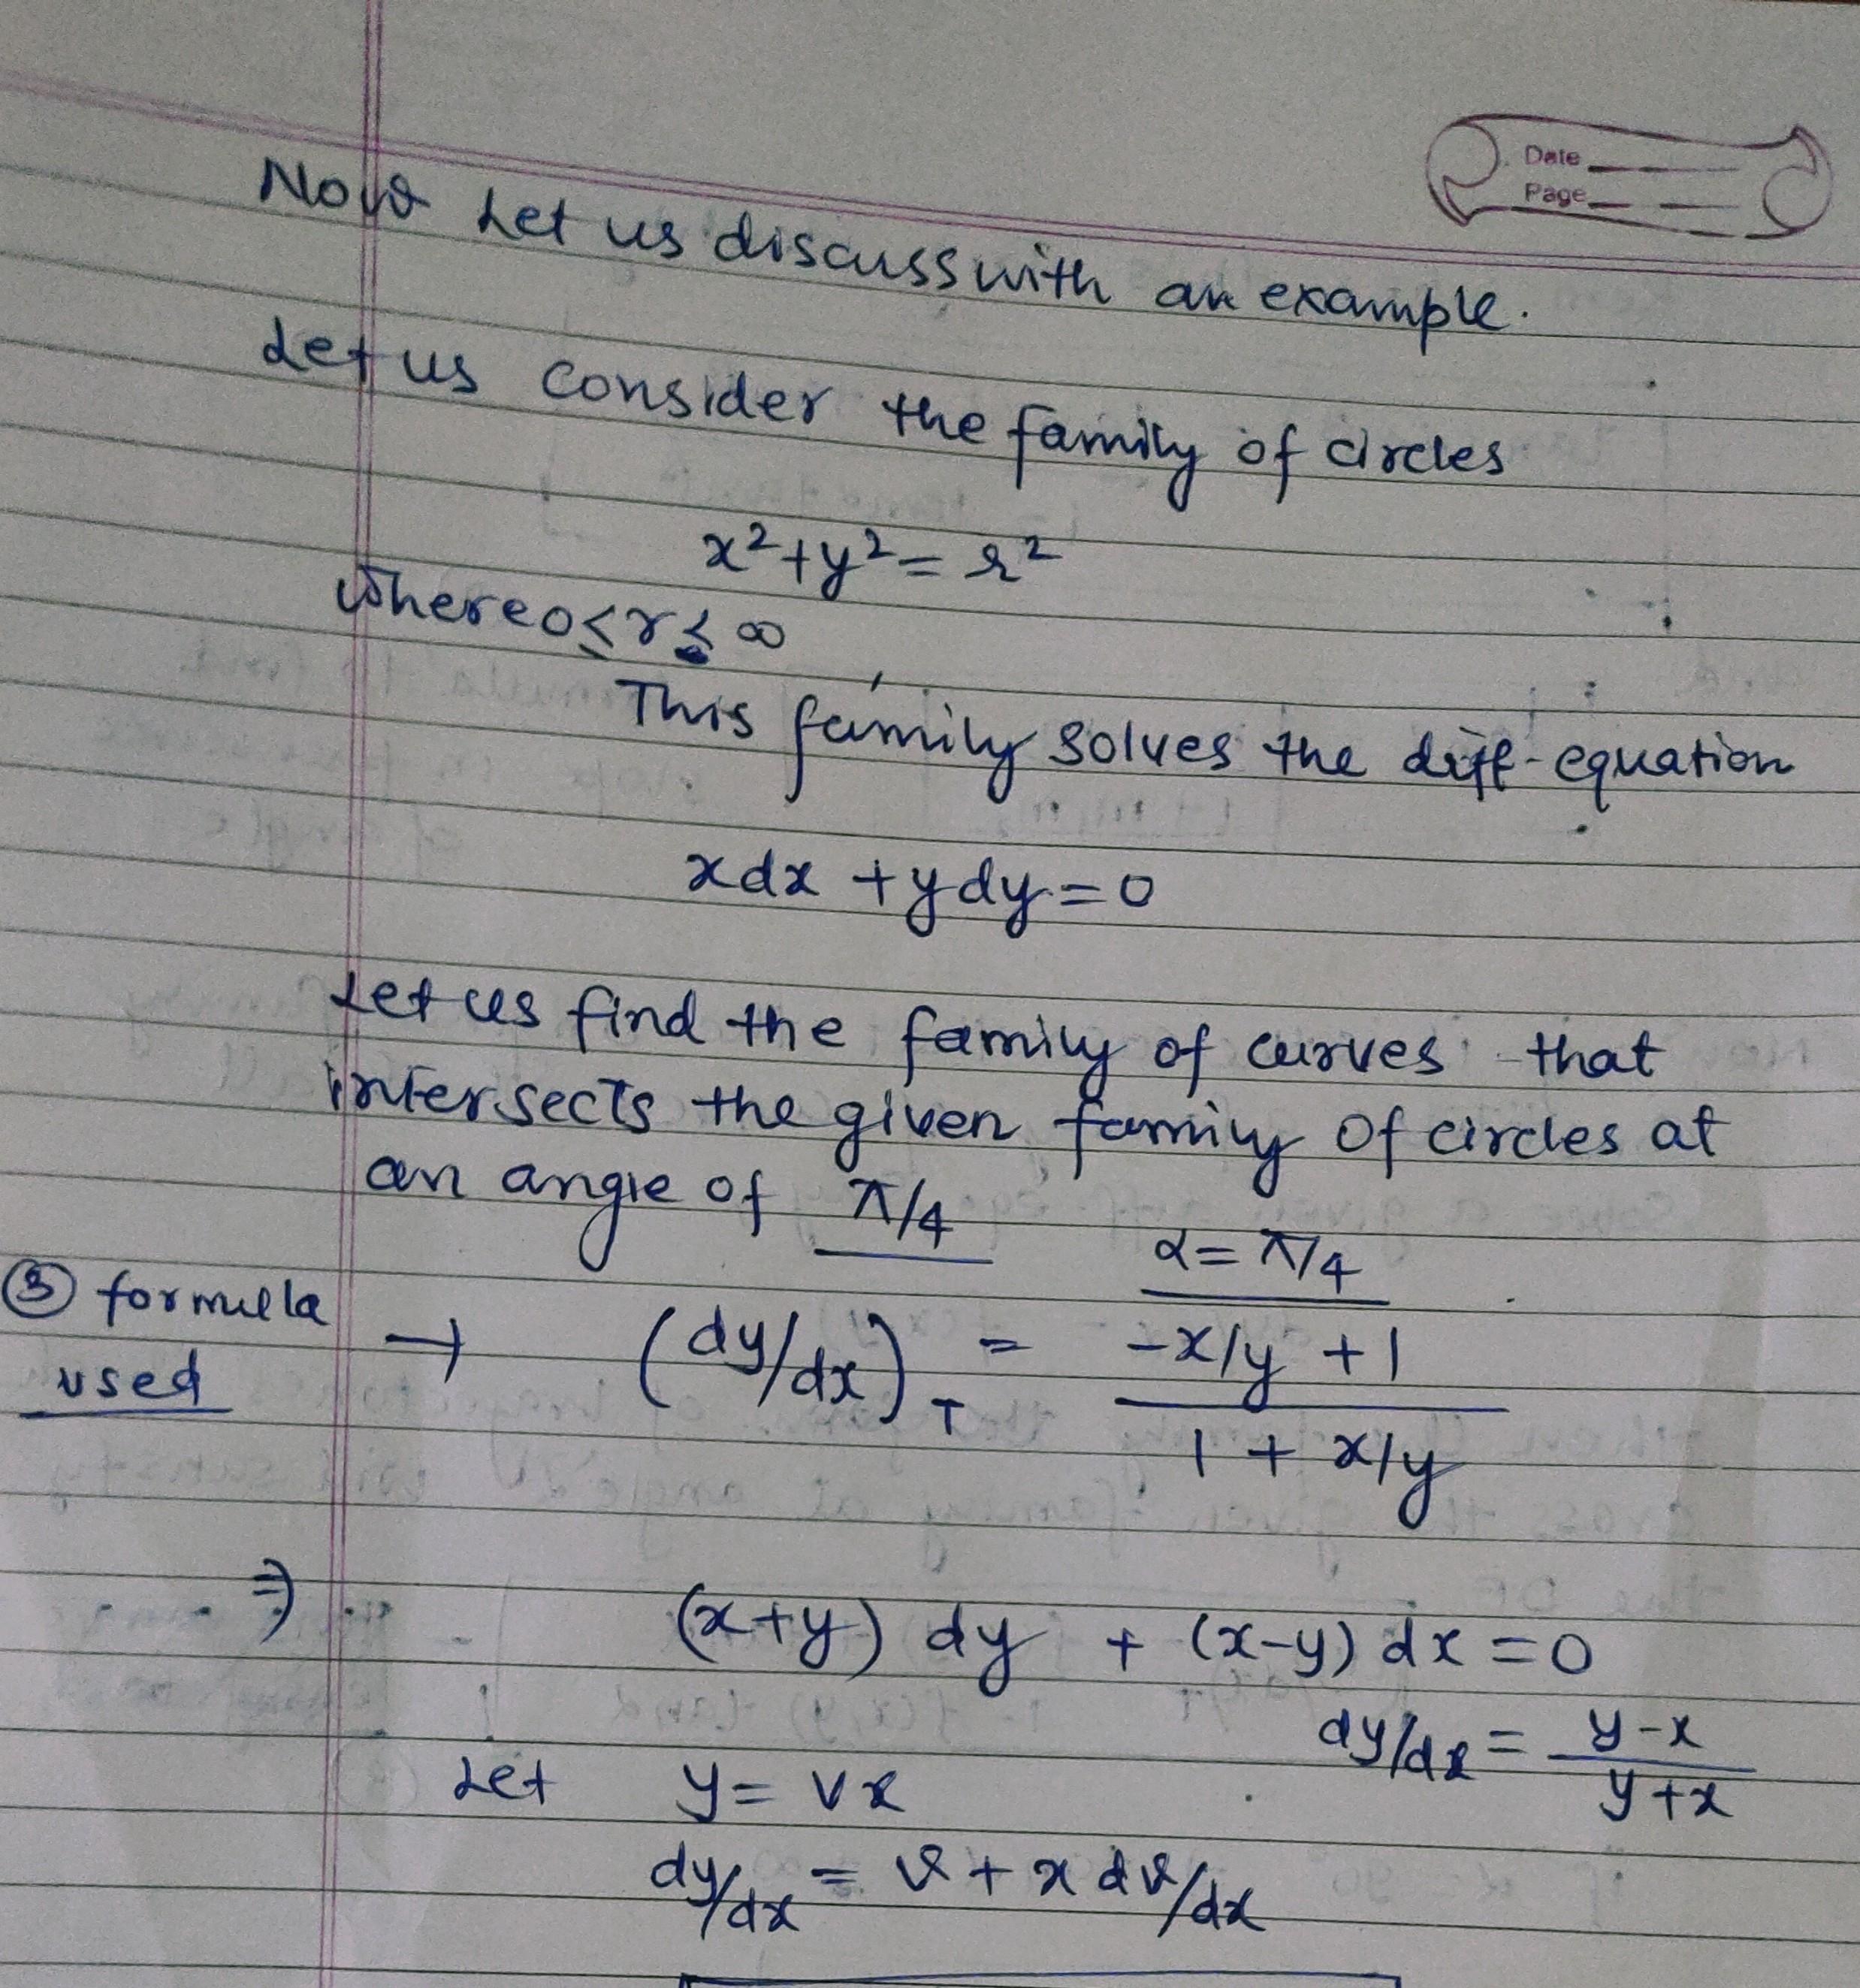 Date
Page
Now Let us discuss with an example.
Let us consider the family of circles
x²+y²= r²
where 0≤r≤∞,
This family solves the diff-equation
xdx +ydy=0
Let us find the family of curves that
intersects the given family of circles at
an angle of π/4
α= π/4
③ formulla
used
→ (dy/dx)T = (-x/y +1)/(1 + x/y)
⇒ (x+y) dy + (x-y) dx =0
dy/dx = (y-x)/(y+x)
Let y= vx
dy/dx = v + x dv/dx